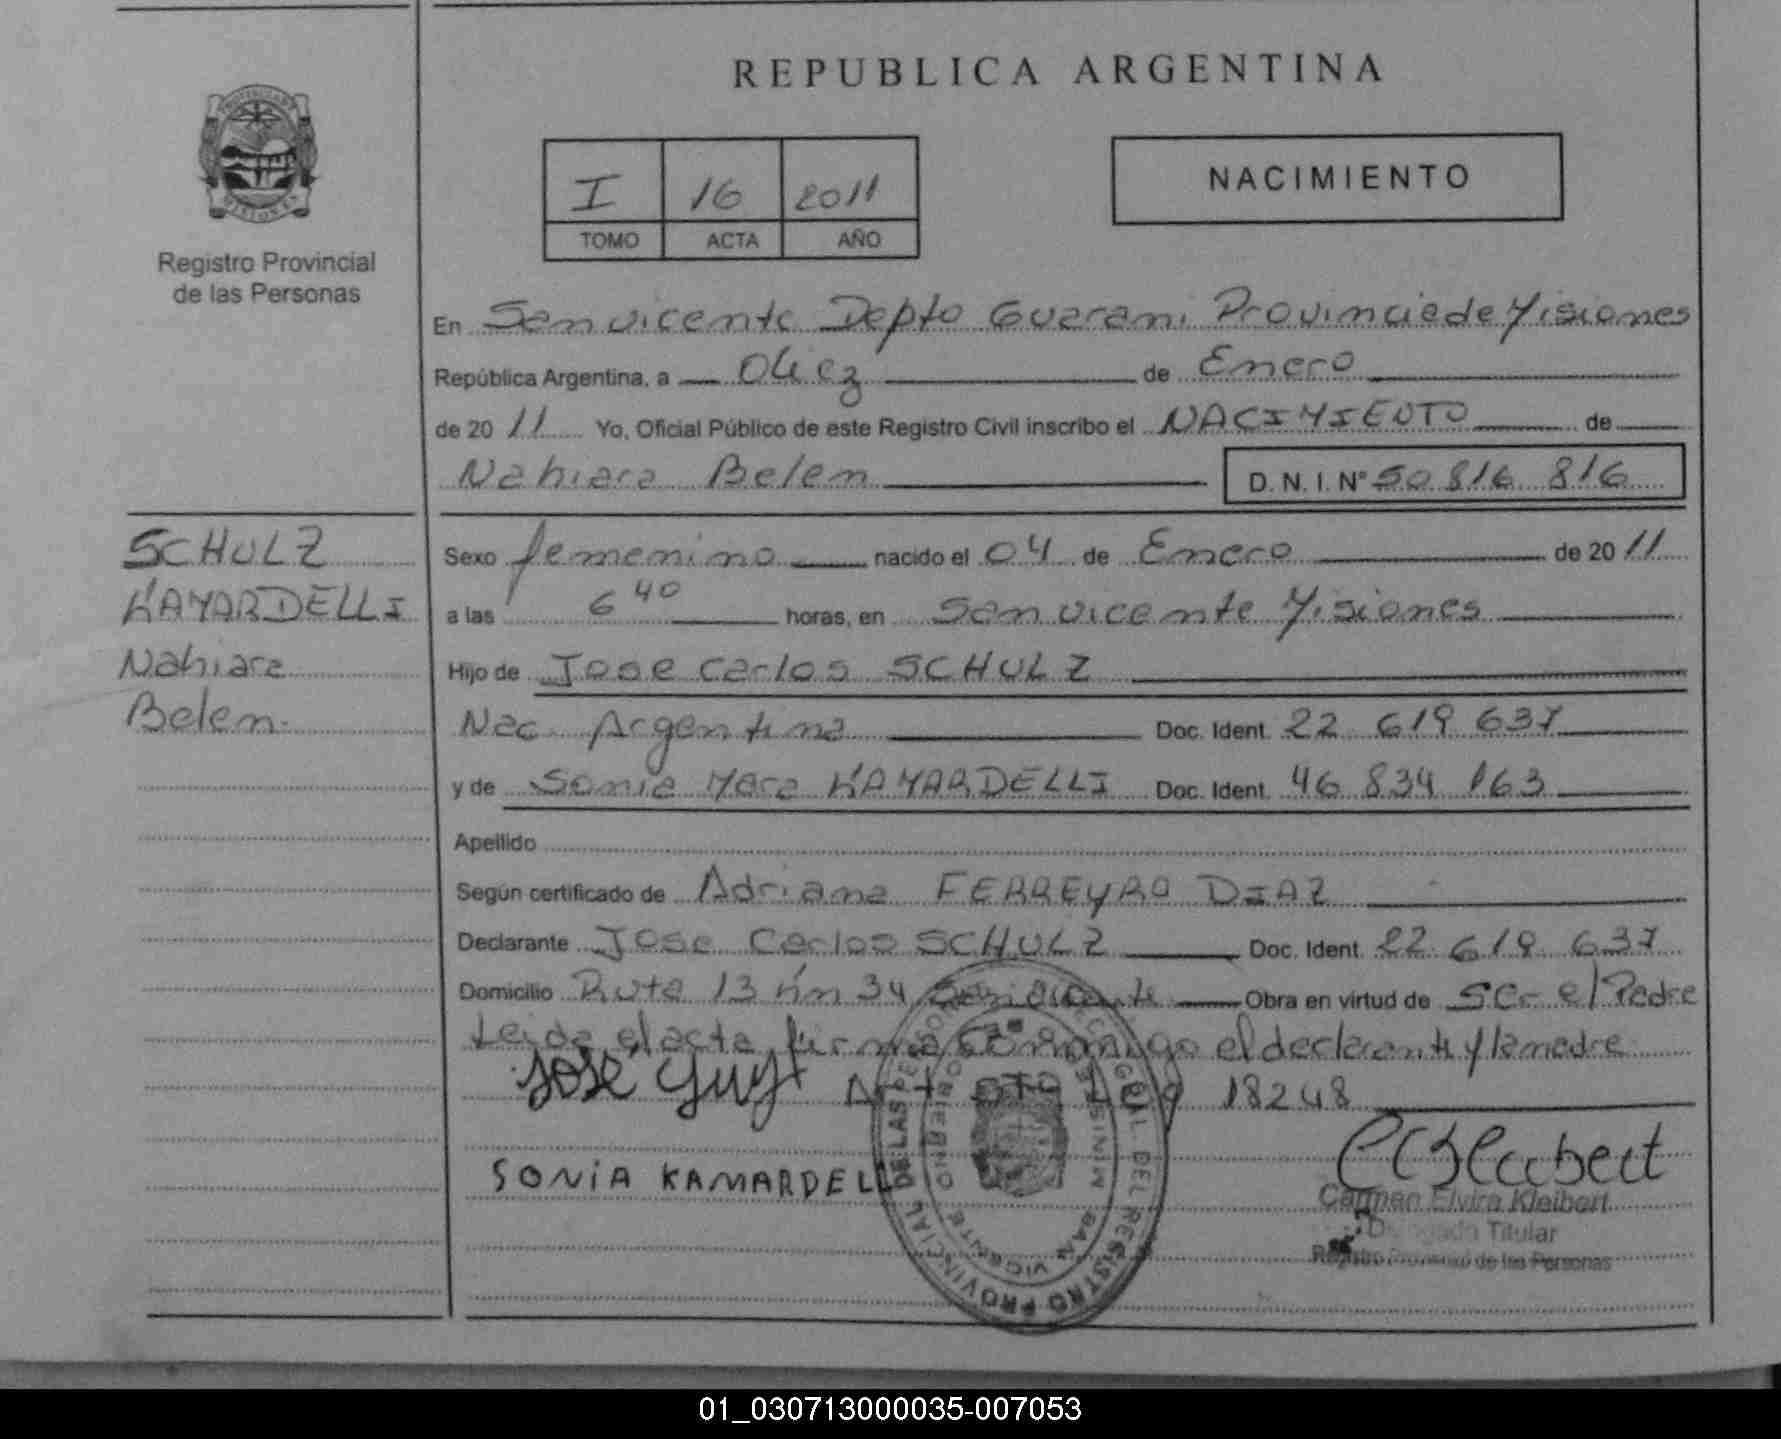 REPUBLICA ARGENTINA
PROVINCIA DE
MISIONES
Registro Provincial
de las Personas
I 16 2011
TOMO ACTA AÑO
NACIMIENTO
En San vicente Depto Guarani Provincia de Misiones
República Argentina, a Diez de Enero
de 20 11 Yo, Oficial Público de este Registro Civil inscribo el NACIMIENTO de
Nahiara Belen D. N. I. Nº 50 816 816
SCHULZ
KAMARDELLI
Nahiara
Belen
Sexo femenino nacido el 04 de Enero de 20 11
a las 6 40 horas, en San vicente Misiones
Hijo de Jose Carlos SCHULZ
Nac. Argentina Doc. Ident. 22 619 637
y de Sonia Mara KAMARDELLI Doc. Ident. 46 834 163
Apellido
Según certificado de Adriana FERREYRO DIAZ
Declarante Jose Carlos SCHULZ Doc. Ident. 22 619 637
Domicilio Ruta 13 km 34 San vicente Obra en virtud de ser el Padre
Leida el acta firma conmigo el declarante y la madre
José Art Ley 18248
SONIA KAMARDELLI
Carmen Elvira Kleibert
Delegada Titular
Registro Provincial de las Personas
01_030713000035-007053